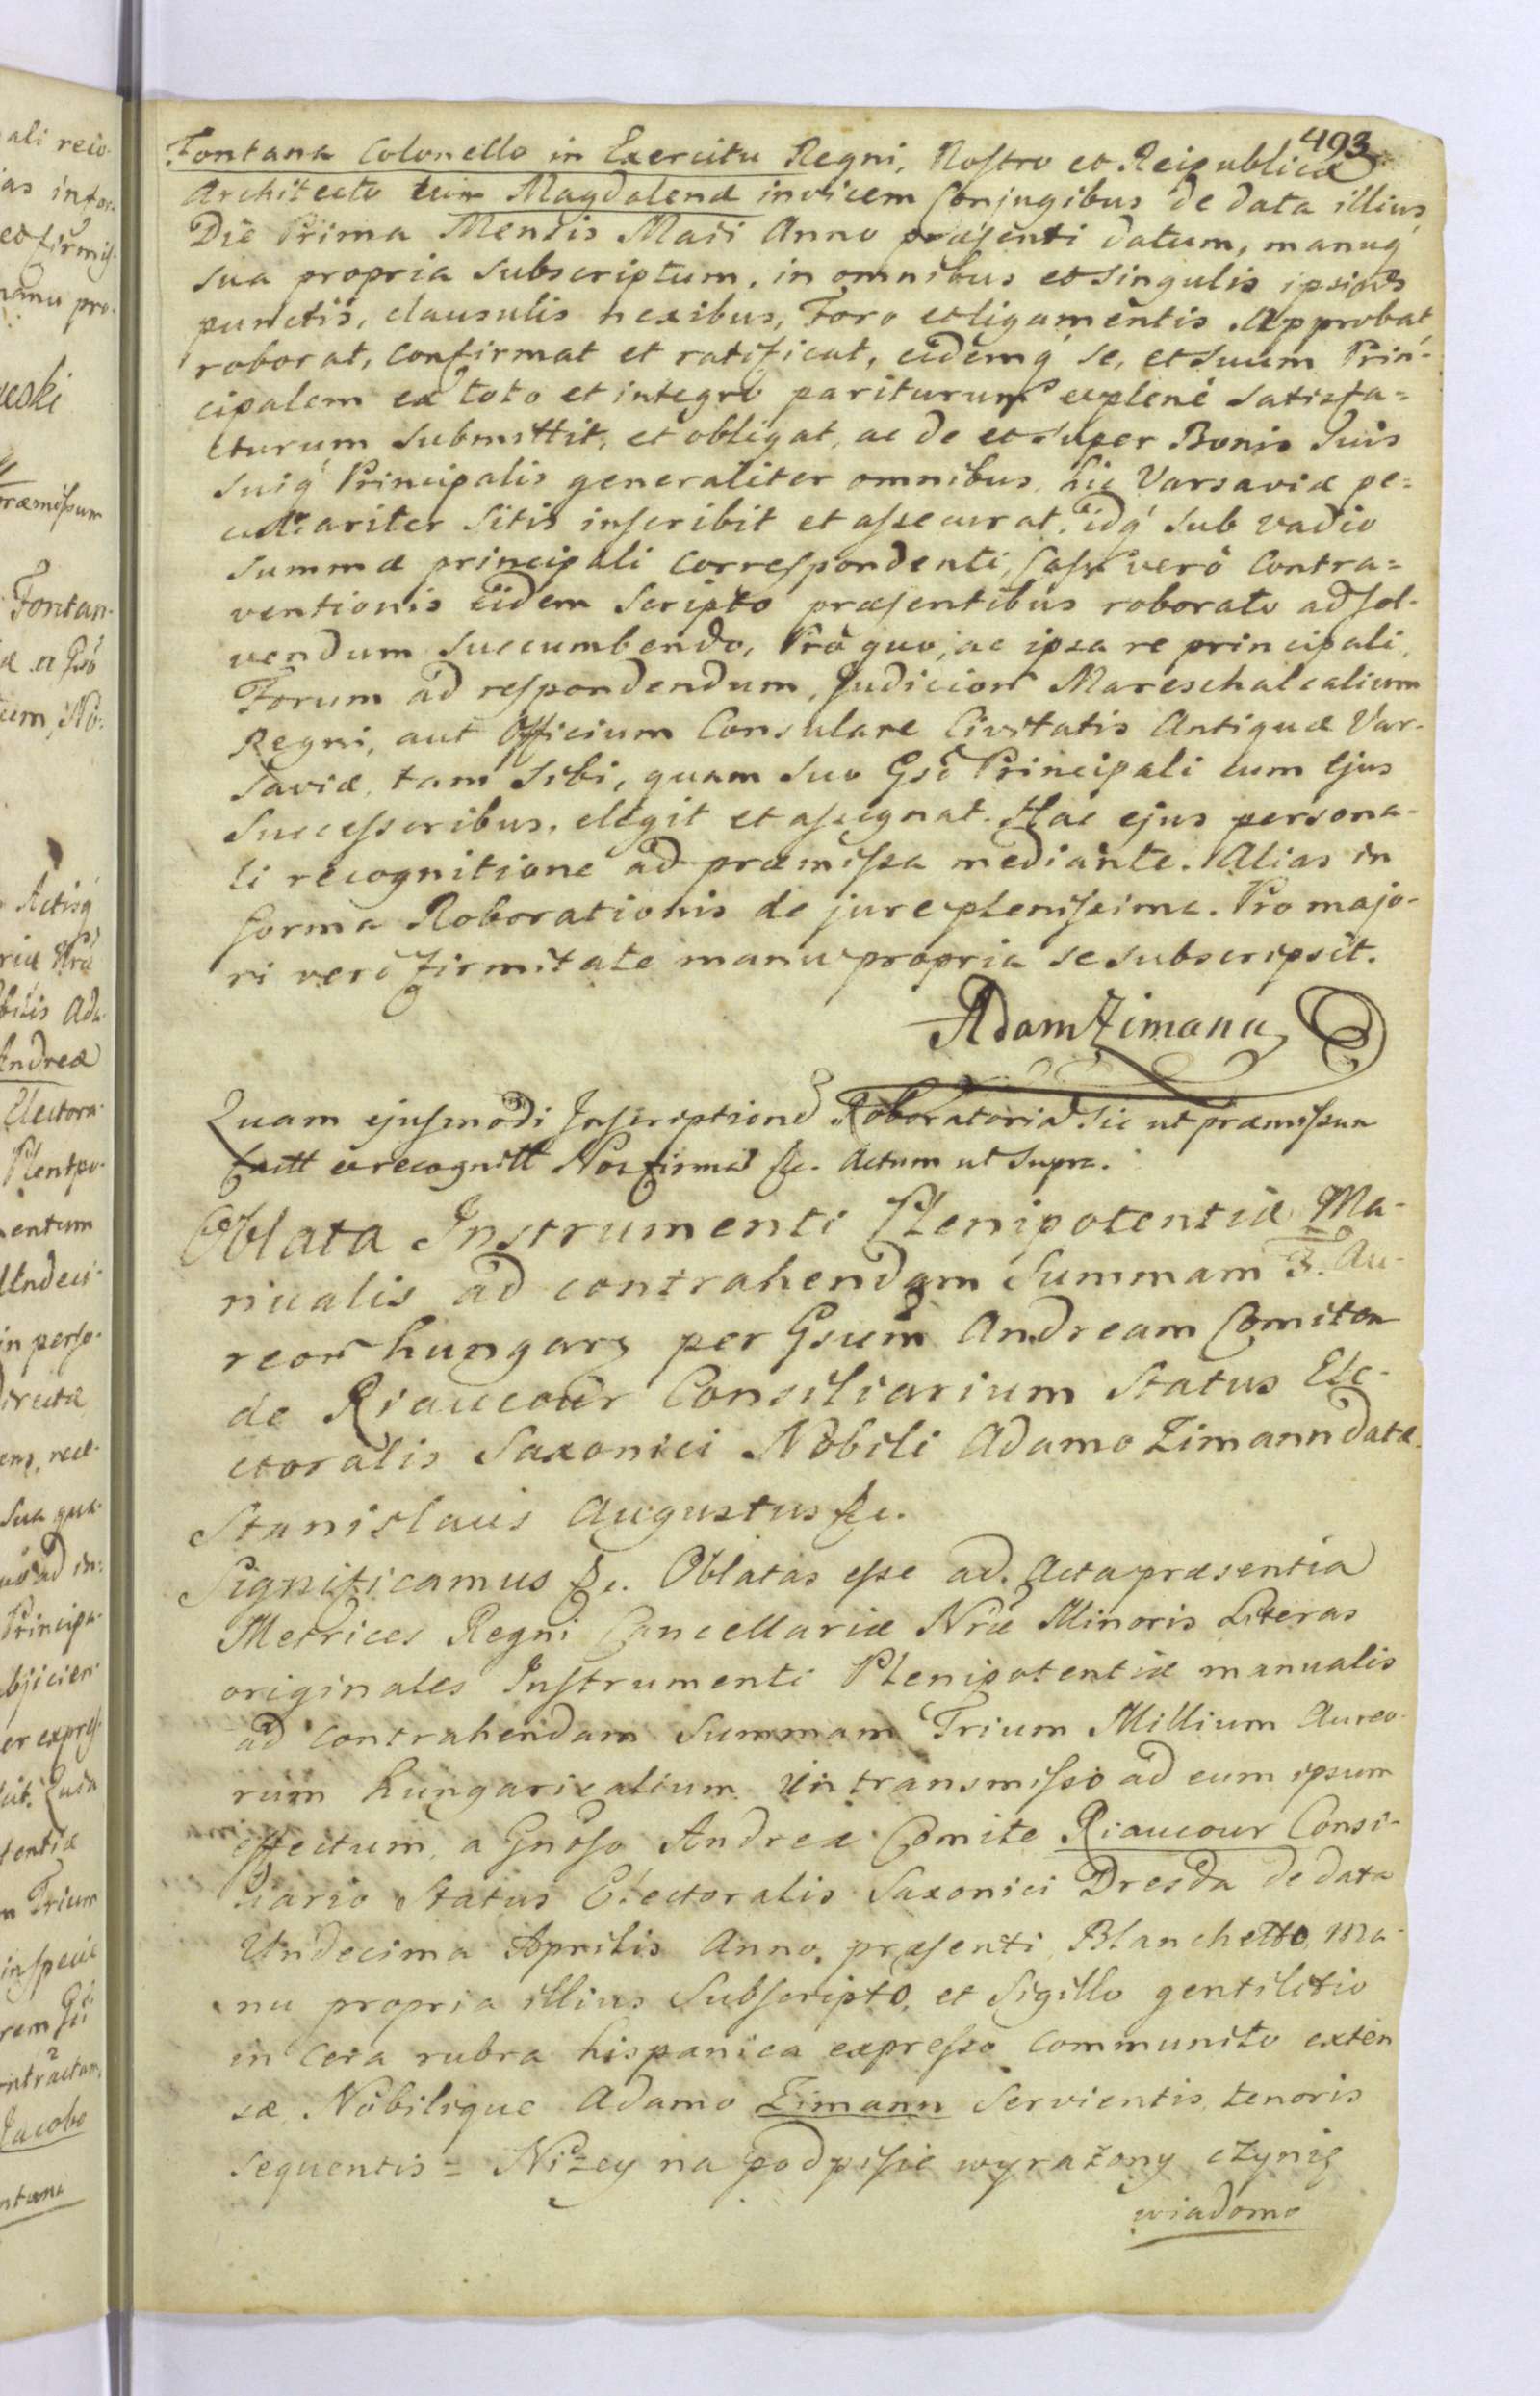 493
Fontana Colonello in Exercitu Regni, Nostro et Reipublicæ
Architecto cum Magdalena invicem Conjugibus de data illius
Die Prima Mensis Maii Anno præsenti datum, manuq́
sua propria subscriptum, in omnibus et singulis ipsius
punctis, clausulis nexibus, Foro et ligamentis Approbat
roborat, confirmat et ratificat, eidemq́ se, et suum Prin-
cipalem ex toto et integro pariturum explene satisfa=
cturum submittit, et obligat, ac de et super Bonis suis
suiq́ Principalis generaliter omnibus hic Varsaviæ pe=
culiariter sitis inscribit et assecurat, idq́ sub vadio
summæ principali correspondenti, Casu verò Contra=
ventionis eidem Scripto præsentibus roborato ad sol-
vendum succumbendo, Pro quo, ac ipsa re principali,
Forum ad respondendum, Judicior Mareschalcalium
Regni, aut Officium Consulare Civitatis Antiquæ Var-
saviæ, tam sibi, quam suo Gso Principali cum Ejus
Successoribus, elegit et assignat. Hac ejus persona-
li recognitione ad præmissa mediante. Alias in
forma Roborationis de jure plenissime. Pro majo-
ri vero firmitate manu propria se subscripsit.
Adam Zimann
Quam ejusmodi Inscriptione Roboratoria sic ut præmissum
factt et recognitt Nos firma &c. Actum ut supra.
Oblata Instrumenti Plenipotentiæ Ma-
nualis ad contrahendam Summam 3. Au-
reor hungar per Gsum Andream Comitem
de Riaucour Consiliarium Status Ele-
ctoralis Saxonici Nobili Adamo Zimann datæ.
Stanislaus Augustus &c.
Significamus &c. Oblatas esse ad Acta præsentia
Metrices Regni Cancellariæ Nræ Minoris Literas
originales Instrumenti Plenipotentiæ manualis
ad contrahendam Summam Trium Millium Aureo-
rum hungaricalium in transmisso ad eum ipsum
effectum, a Gnoso Andrea Comite Riaucour Consi-
liario Status Electoralis Saxonici Dresda de data
Undecima Aprilis Anno præsenti Blanchetto, ma-
nu propria illius Subscripto, et Sigillo gentilitio
in cera rubra hispanica expresso communito exten
sæ, Nobilique Adamo Zimann Servientis, tenoris
sequentis = Niżey na podpisie wyrażony czynię
wiadomo